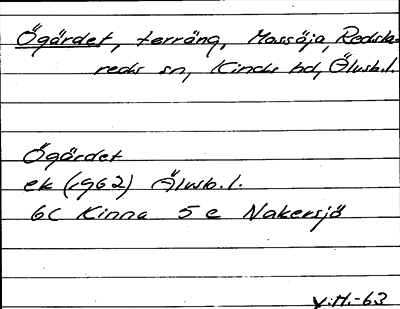 Ögärdet, terräng, Mossöja, Redsla-
reds sn, Kinds hd, Älvsb.l.
Ögärdet
ek (1962) Älvsb.l.
6C Kinna 5 e Nakersjö
V.H.-63